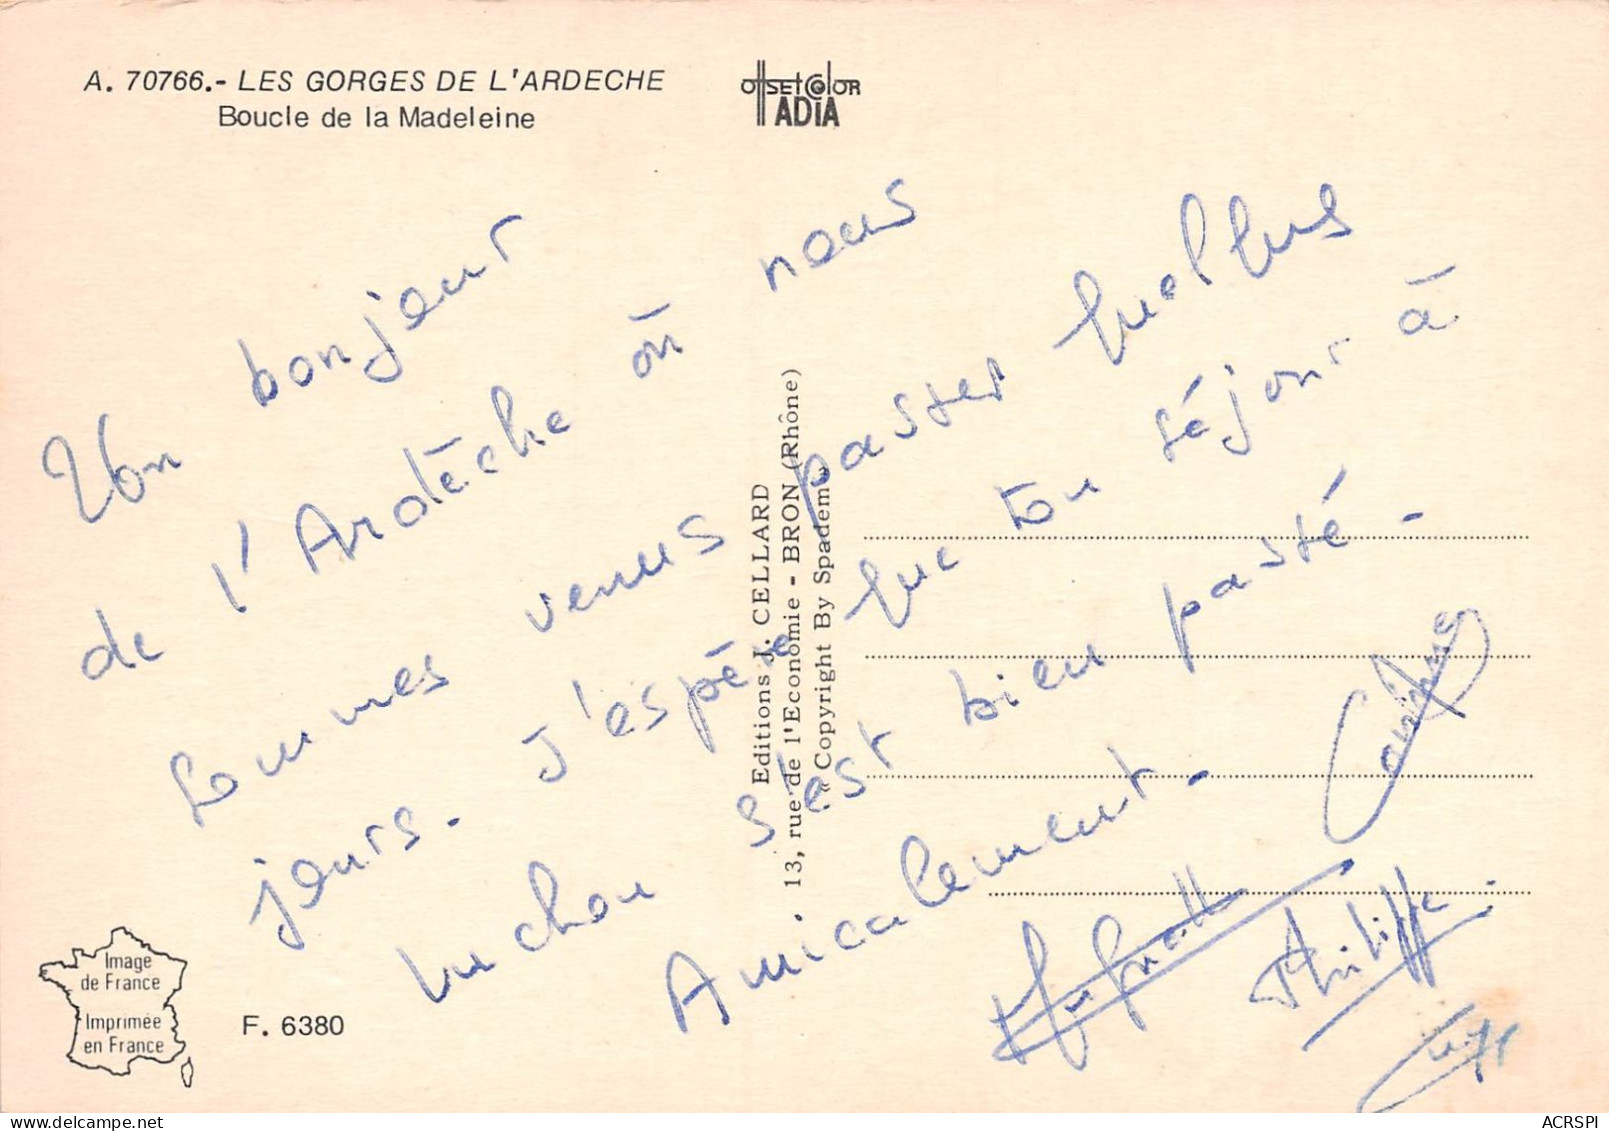 A. 70766.- LES GORGES DE L'ARDECHE
Boucle de la Madeleine
OffSETCOlOR
ADIA
Un bonjour
de l'Ardèche où nous
sommes venus passer quelques
jours. J'espère que ton séjour à
Luchon s'est bien passé.
Amicalement.
Corinne
Philippe
Editions J. CELLARD
13, rue de l'Economie - BRON (Rhône)
« Copyright By Spadem »
Image
de France
Imprimée
en France
F. 6380
ACRSPI